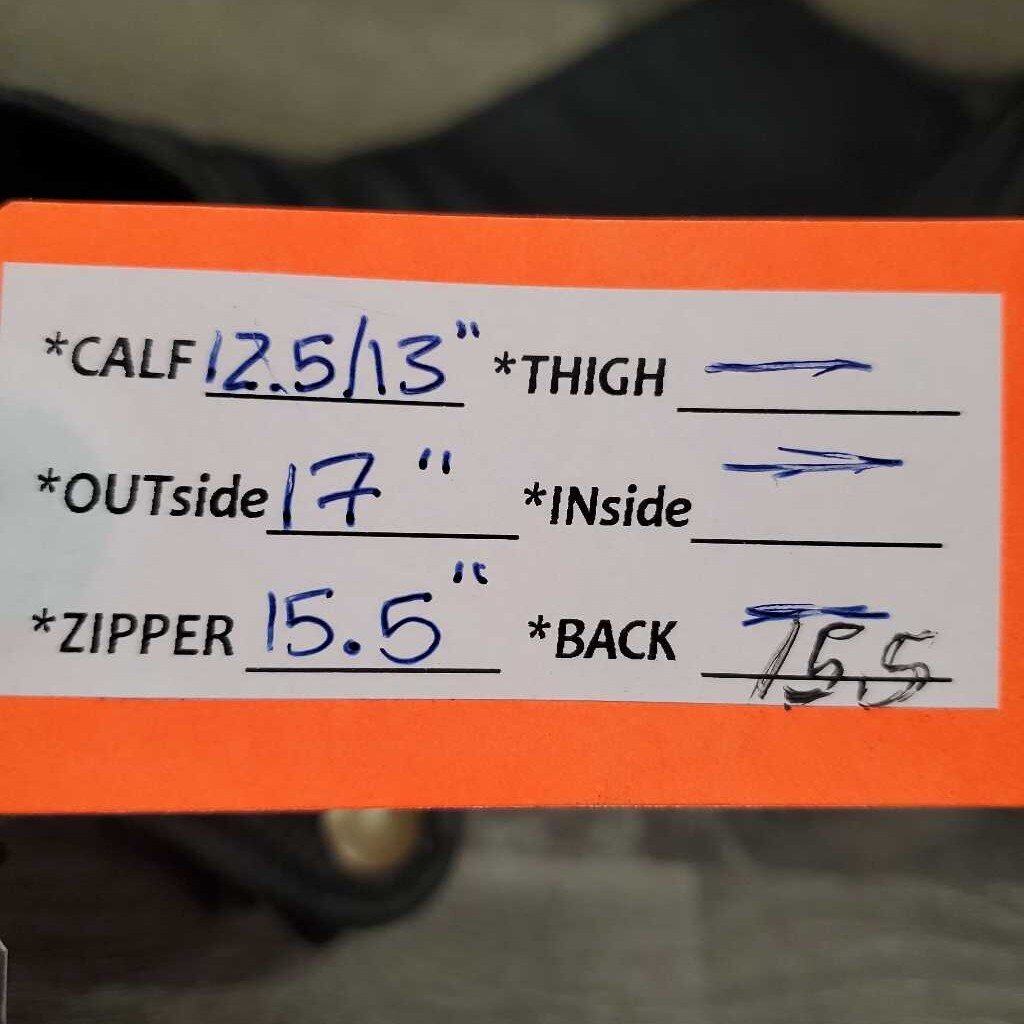 *CALF 12.5/13" *THIGH —
*OUTside 17" *INside —
*ZIPPER 15.5" *BACK — 15.5